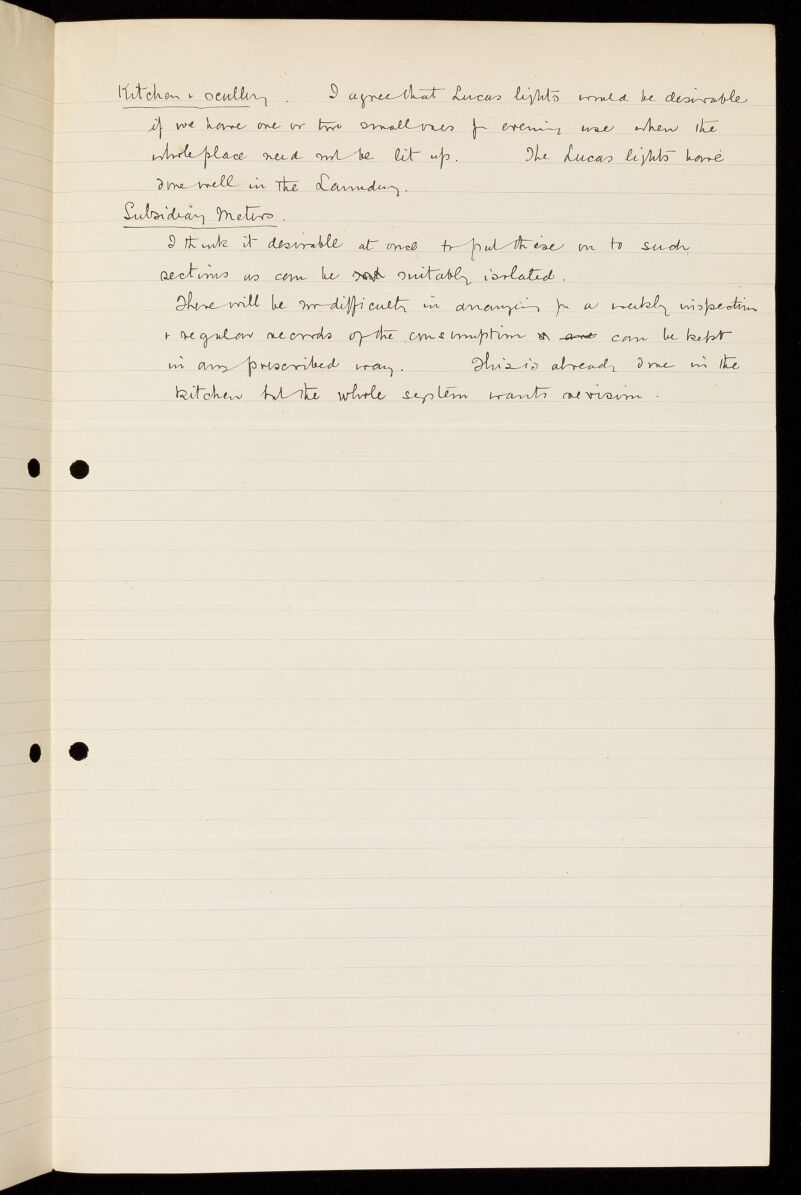 Kitchen & scullery. I agree that Lucas lights would be desirable
if we have one or two small ones for evening use when the
whole place need not be lit up. The Lucas lights have
done well in the Laundry.
Subsidiary Meters.
I think it desirable at once to put these on to such
sections as can be suitably isolated.
There will be no difficulty in arranging for a weekly inspection
& regular records of the consumption can be kept
in any prescribed way. This is already done in the
kitchen but the whole system wants revision.